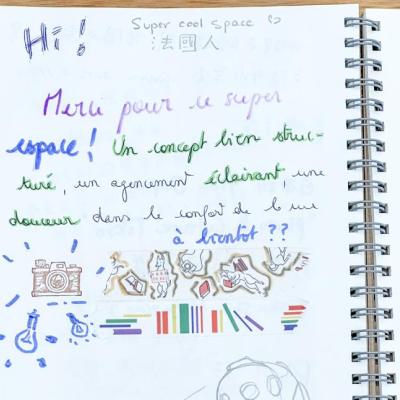 Hi!
Super cool space
法國人
Merci pour ce super
espace! Un concept bien struc-
turé, un agencement éclairant une
douceur dans le confort de la vue
à bientôt ??